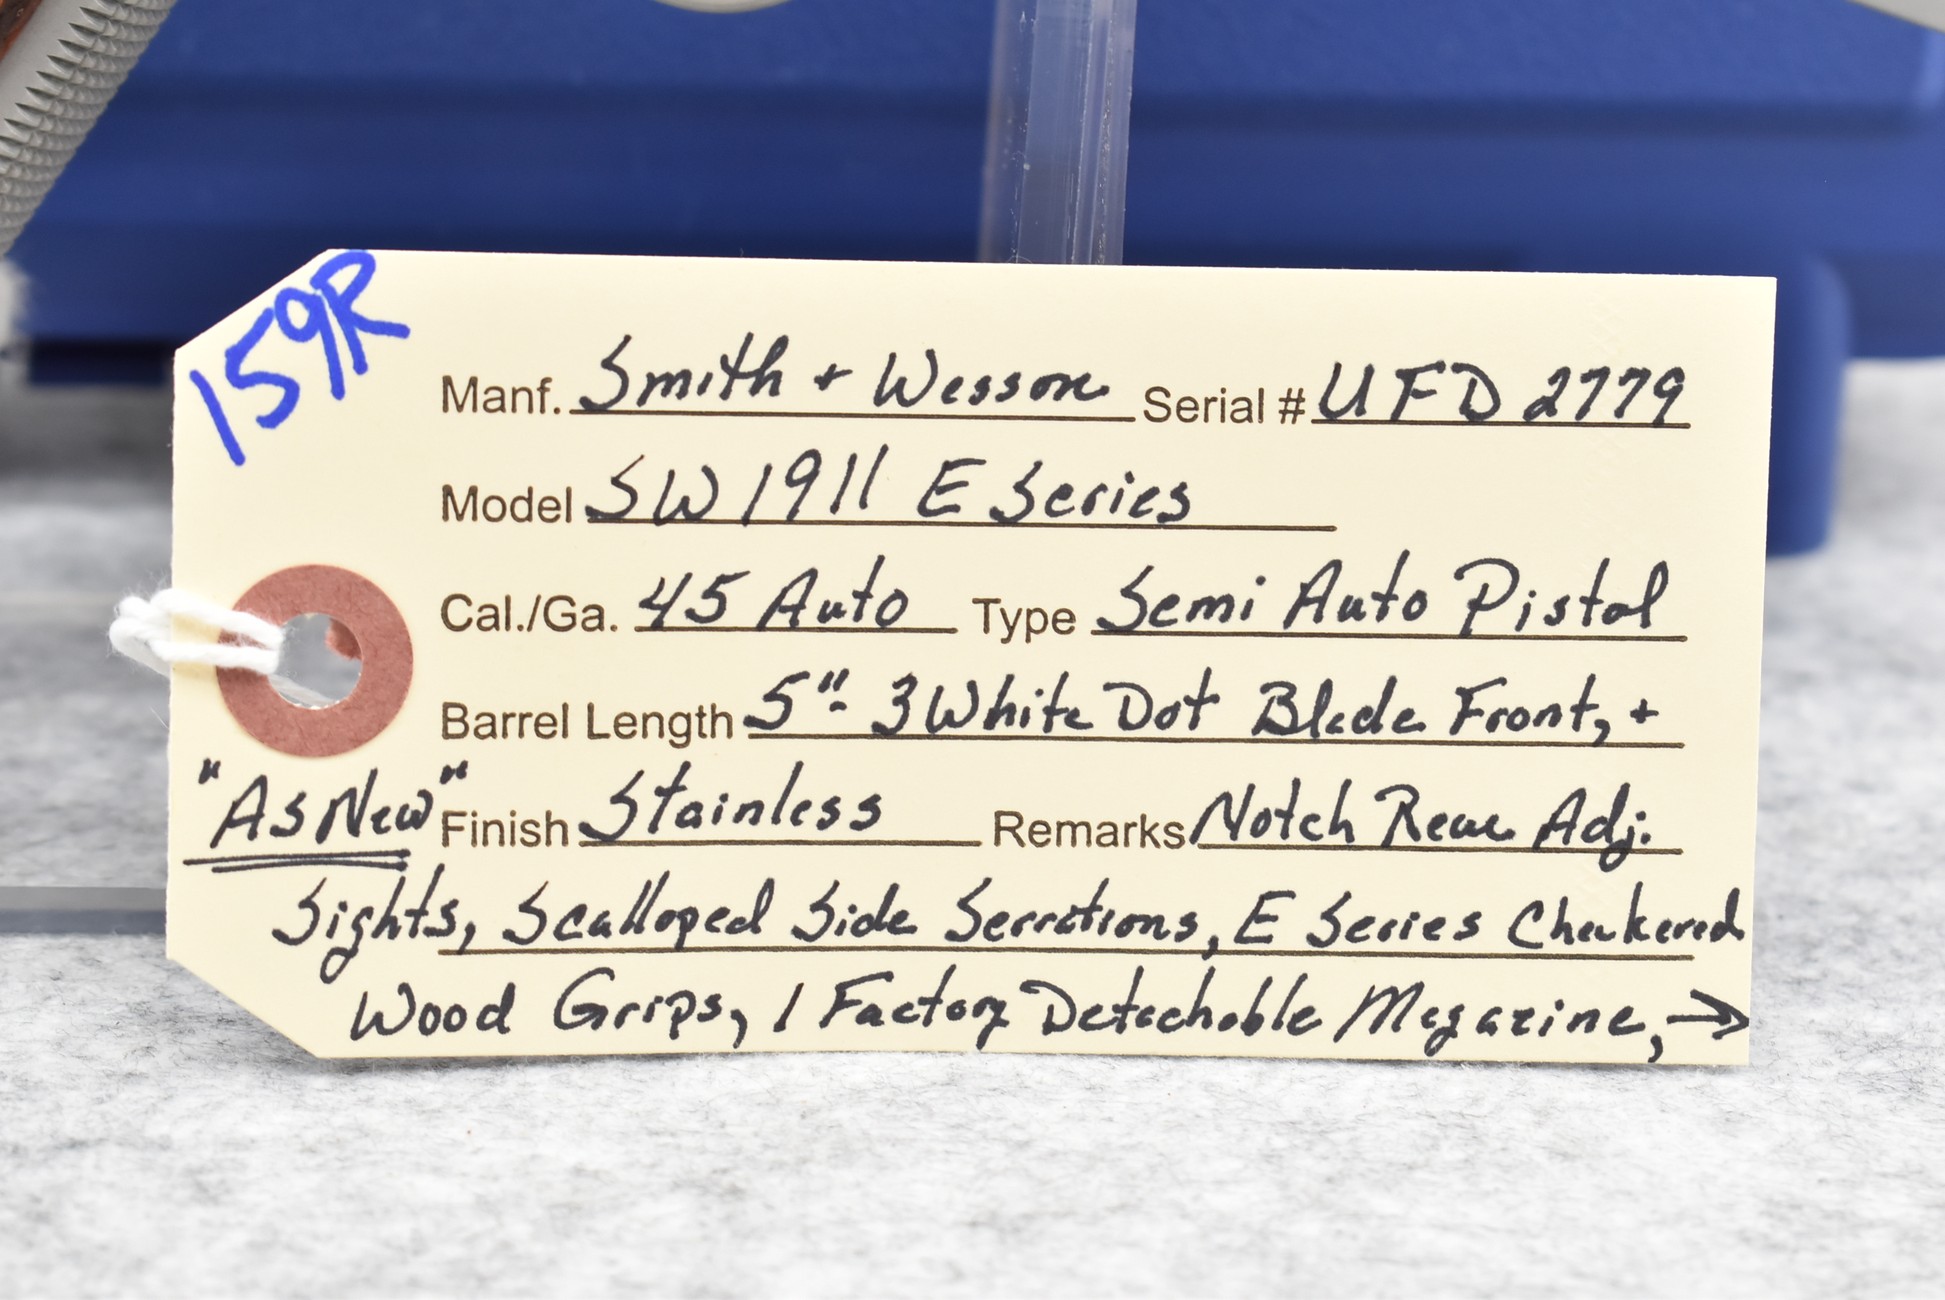 159R
Manf. Smith + Wesson Serial # UFD 2779
Model SW 1911 E Series
Cal./Ga. 45 Auto Type Semi Auto Pistol
Barrel Length 5"- 3 White Dot Blade Front, +
"As New" Finish Stainless Remarks Notch Rear Adj.
Sights, Scalloped Side Serrations, E Series Checkered
Wood Grips, 1 Factory Detachable Magazine, →